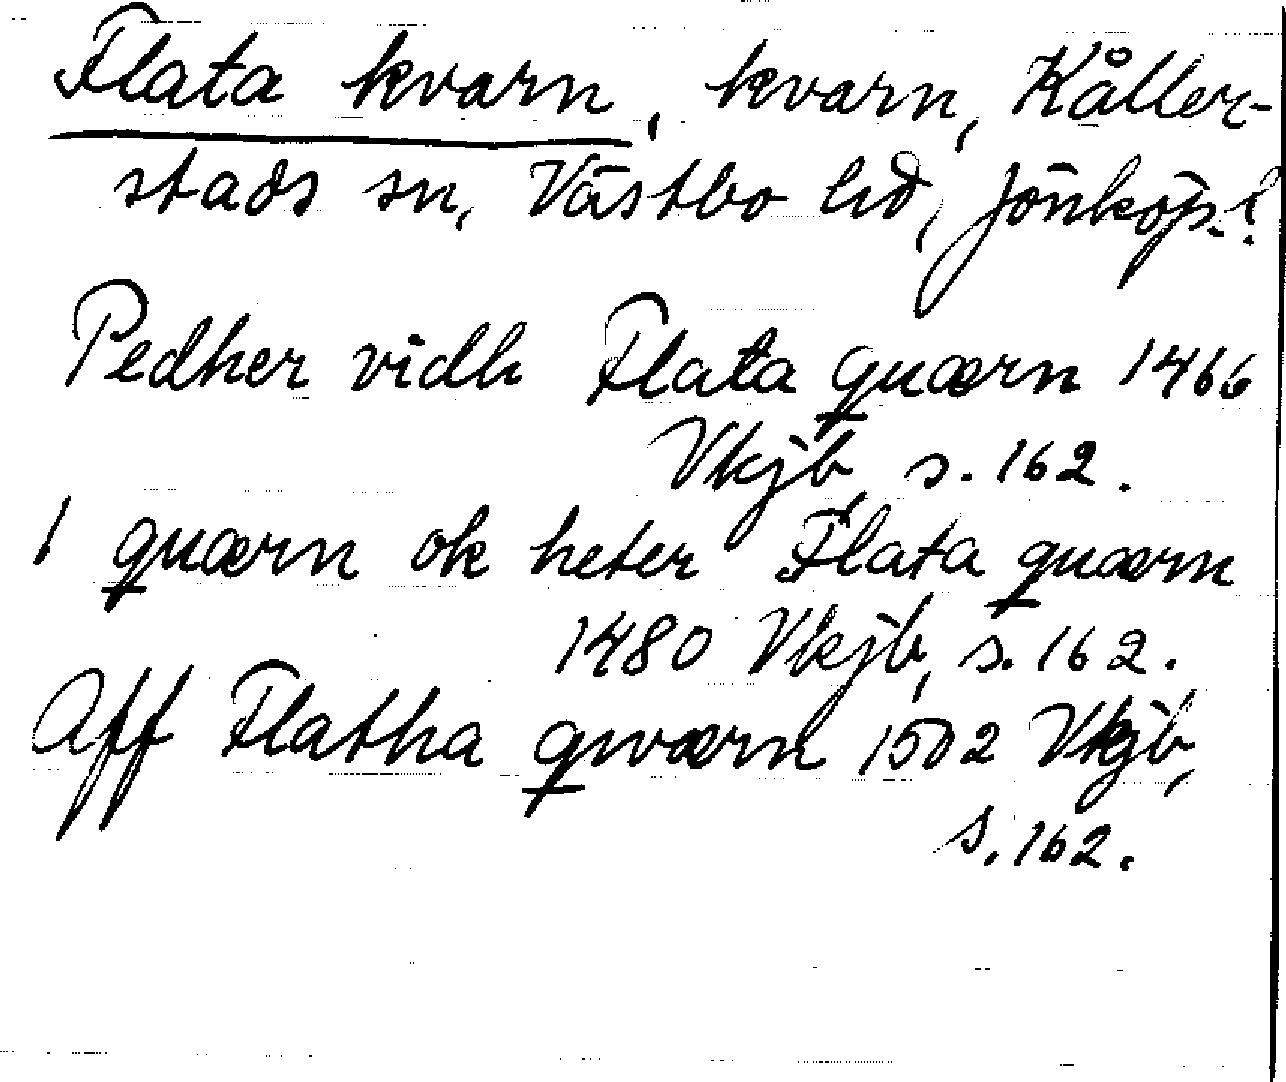 Flata kvarn, kvarn, Kåller-
stads sn, Västbo hd, Jönköp. l.
Pedher vidh Flata quærn 1466
Vkjb, s. 162.
1 quærn ok heter Flata quærn
1480 Vkjb, s. 162.
Aff Flatha qwærn 1502 Vkjb,
s. 162.